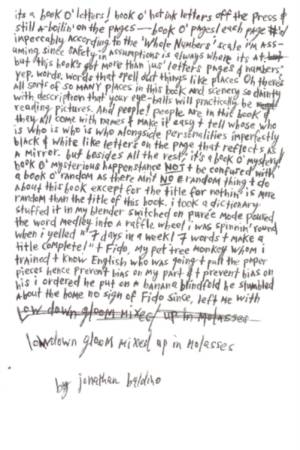 its a book o' letters! book o' hot ink letters off the press &
still a-boilin' on the pages—— book o' pages! each page #'d
impeccably according to the 'Whole Numbers' scale i'm ass-
uming since safety in assumptions is always where its at.
but this book's got more than jus' letters pages & numbers
yep, words, words that spell out things like places Oh there's
all sort of so MANY places in this book and scenery so dainty
with description that your eye-balls will practically be
reading pictures. And people! people are in this book &
they all come with names t' make it easy t' tell whose who
is who is who is who alongside personalities imperfectly
black & white like letters on the page that reflects as
a mirror. but besides all the rest, it's a book o' mystery!
book o' mysterious happenstance NOT t' be confused with
a book o' random as there aint NO E random thing t' do
about this book except for the title for nothin' is more
random than the title of this book. i took a dictionary
stuffed it in my blender switched on pureé mode poured
the word medley into a raffle wheel i was spinnin' round
when i yelled "7 days in a week! 7 words t' make a
title complete!" t' Fido, my pet tree monkey whom i
trained t' know English who was going t' pull the paper
pieces hence prevent bias on my part & t' prevent bias on
his i ordered he put on a banana blindfold he stumbled
about the home no sign of Fido since, left me with
low down gloom mixed up in Molasses
lowdown gloom mixed up in molasses
by jonathan